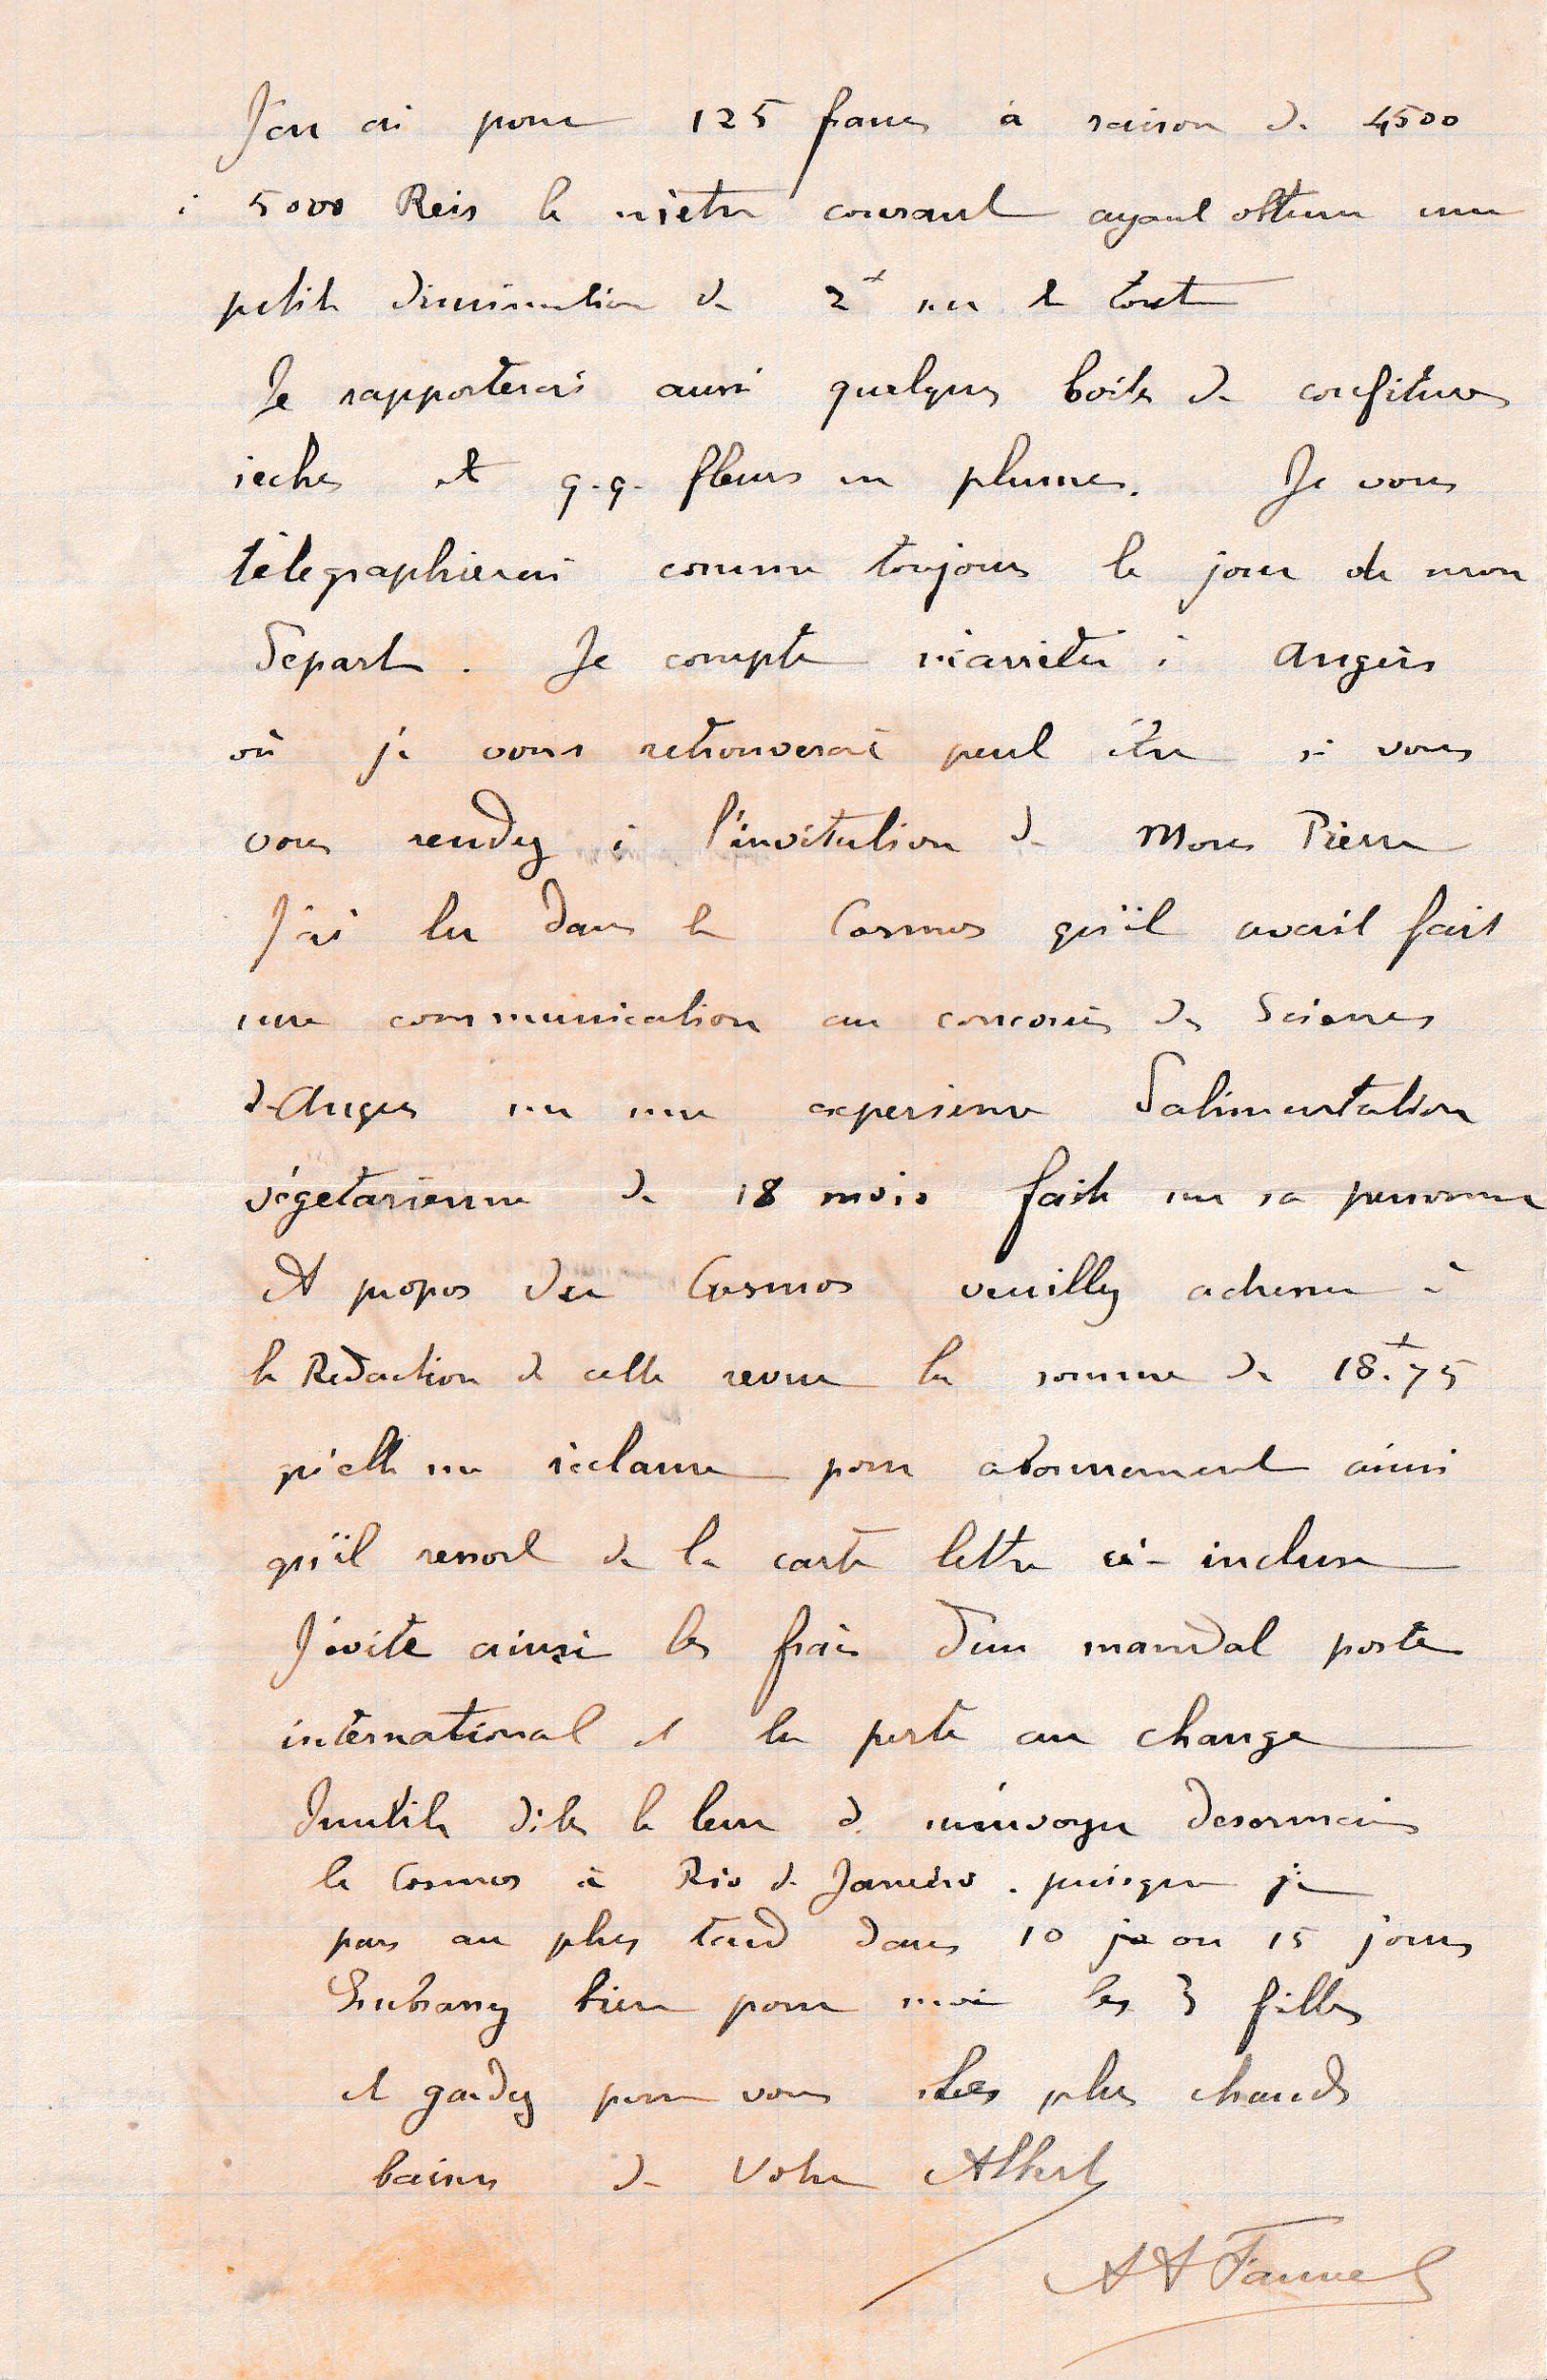 J'en ai pour 125 francs à raison de 4500
à 5000 Reis le mètre courant ayant obtenu une
petite diminution de 2f sur le tout
Je rapporterai aussi quelques boites de confitures
sèches et q.q. fleurs en plumes. Je vous
télegraphierai comme toujours le jour de mon
Départ. Je compte m'arrêter à Angers
où je vous retrouverai peut être si vous
vous rendez à l'invitation de Mons Pierre
J'ai lu dans le Cosmos qu'il avait fait
une communication au concours des Sciences
d'Angers sur une experience d'alimentation
végetarienne de 18 mois faite sur sa personne
A propos du Cosmos veuillez adresser à
la Redaction de cette revue la somme de 18.f75
qu'elle me réclame pour abonnement ainsi
qu'il ressort de la carte lettre ci-incluse
J'évite ainsi les frais d'un mandat poste
international et la perte au change
Inutile dites le leur de m'envoyer desormais
le Cosmos à Rio de Janeiro. puisque je
pars au plus tard dans 10 ou 15 jours
Embrassez bien pour moi les 3 filles
et gardez pour vous les plus chauds
baisers de Votre Albert
AA Fauvel